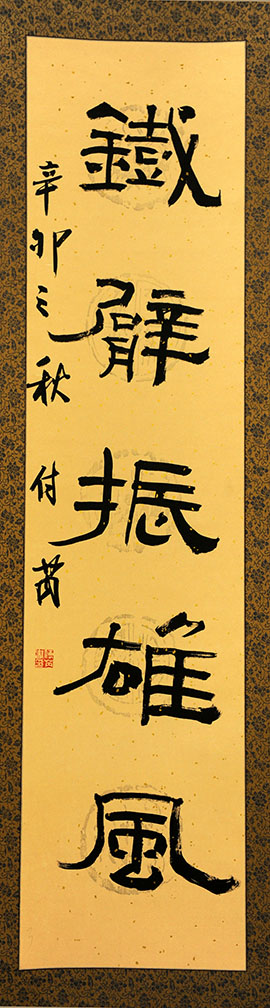 鐵臂振雄風
辛卯之秋 付茵